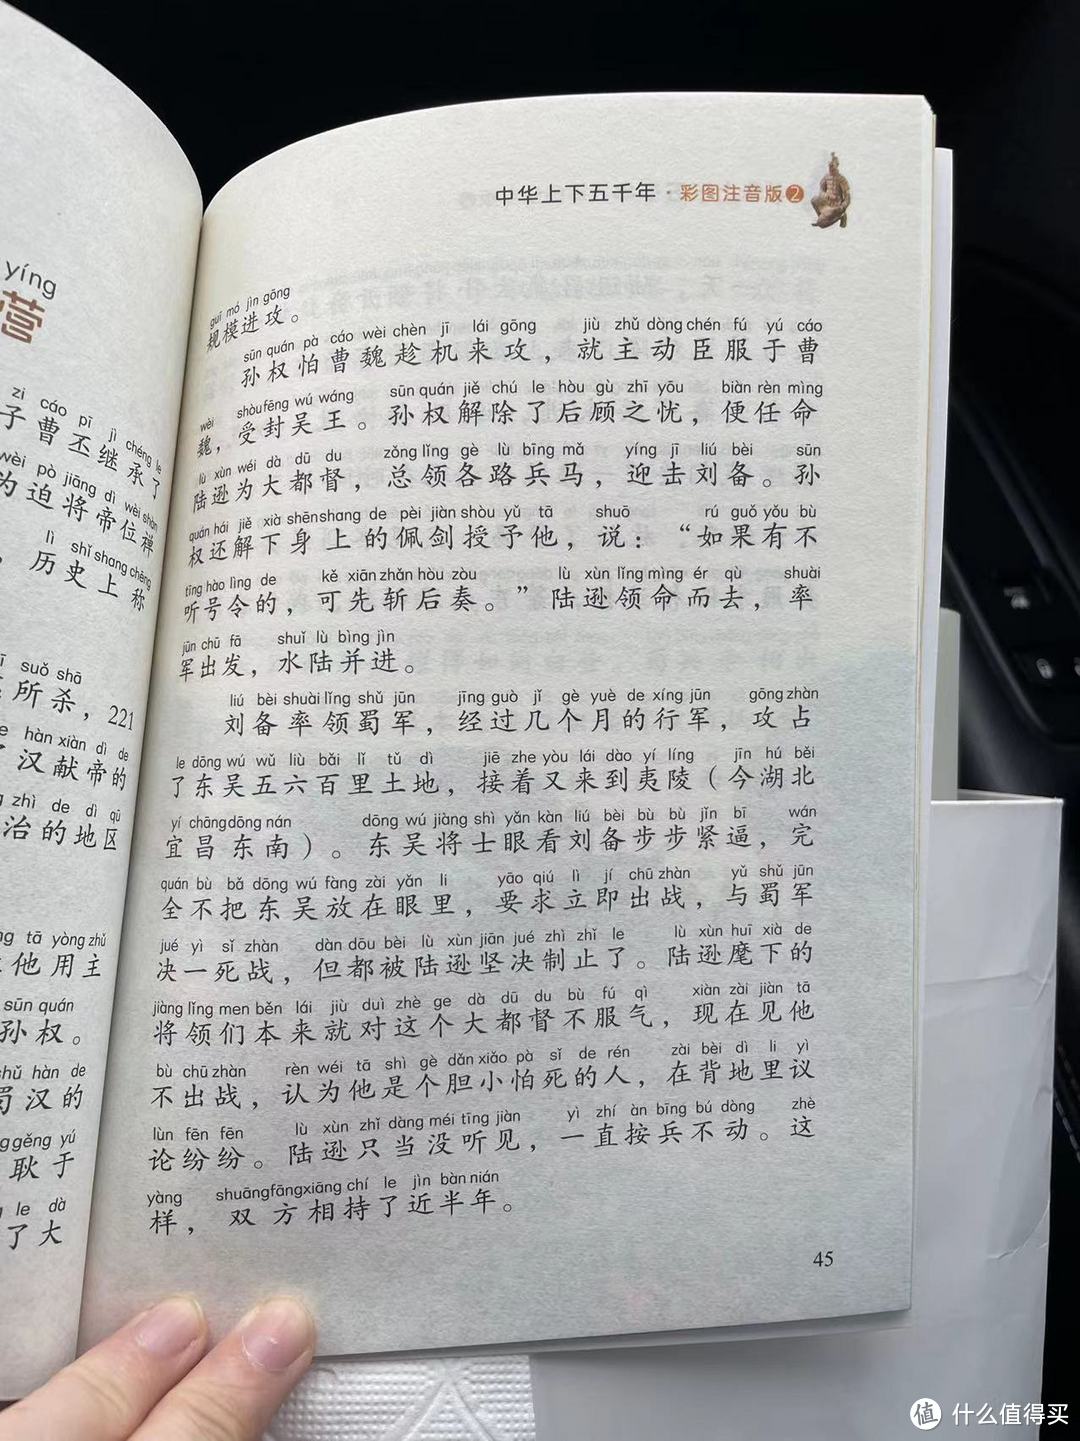 yíng
营
zi cáo pī jì chéng le
子曹丕继承了
wèi pò jiāng dì wèi shàn
为迫将帝位禅
lì shǐ shang chēng
，历史上称
suǒ shā
所杀，221
hàn xiàn dì de
了汉献帝的
zhì de dì qū
治的地区
tā yòng zhǔ
他用主
sūn quán
孙权。
shǔ hàn de
蜀汉的
gěng yú
耿于
le dà
了大
中华上下五千年·彩图注音版2
guī mó jìn gōng
规模进攻。
sūn quán pà cáo wèi chèn jī lái gōng jiù zhǔ dòng chén fú yú cáo
孙权怕曹魏趁机来攻，就主动臣服于曹
wèi shòu fēng wú wáng sūn quán jiě chú le hòu gù zhī yōu biàn rèn mìng
魏，受封吴王。孙权解除了后顾之忧，便任命
lù xùn wéi dà dū du zǒng lǐng gè lù bīng mǎ yíng jī liú bèi sūn
陆逊为大都督，总领各路兵马，迎击刘备。孙
quán hái jiě xià shēn shang de pèi jiàn shòu yǔ tā shuō rú guǒ yǒu bù
权还解下身上的佩剑授予他，说：“如果有不
tīng hào lìng de kě xiān zhǎn hòu zòu lù xùn lǐng mìng ér qù shuài
听号令的，可先斩后奏。”陆逊领命而去，率
jūn chū fā shuǐ lù bìng jìn
军出发，水陆并进。
liú bèi shuài lǐng shǔ jūn jīng guò jǐ gè yuè de xíng jūn gōng zhàn
刘备率领蜀军，经过几个月的行军，攻占
le dōng wú wǔ liù bǎi lǐ tǔ dì jiē zhe yòu lái dào yí líng jīn hú běi
了东吴五六百里土地，接着又来到夷陵（今湖北
yí chāng dōng nán dōng wú jiàng shì yǎn kàn liú bèi bù bù jǐn bī wán
宜昌东南）。东吴将士眼看刘备步步紧逼，完
quán bù bǎ dōng wú fàng zài yǎn li yāo qiú lì jí chū zhàn yǔ shǔ jūn
全不把东吴放在眼里，要求立即出战，与蜀军
jué yì sǐ zhàn dàn dōu bèi lù xùn jiān jué zhì zhǐ le lù xùn huī xià de
决一死战，但都被陆逊坚决制止了。陆逊麾下的
jiàng lǐng men běn lái jiù duì zhè ge dà dū du bù fú qì xiàn zài jiàn tā
将领们本来就对这个大都督不服气，现在见他
bù chū zhàn rèn wéi tā shì gè dǎn xiǎo pà sǐ de rén zài bèi dì li yì
不出战，认为他是个胆小怕死的人，在背地里议
lùn fēn fēn lù xùn zhǐ dàng méi tīng jiàn yì zhí àn bīng bú dòng zhè
论纷纷。陆逊只当没听见，一直按兵不动。这
yàng shuāng fāng xiāng chí le jìn bàn nián
样，双方相持了近半年。
45
值 什么值得买